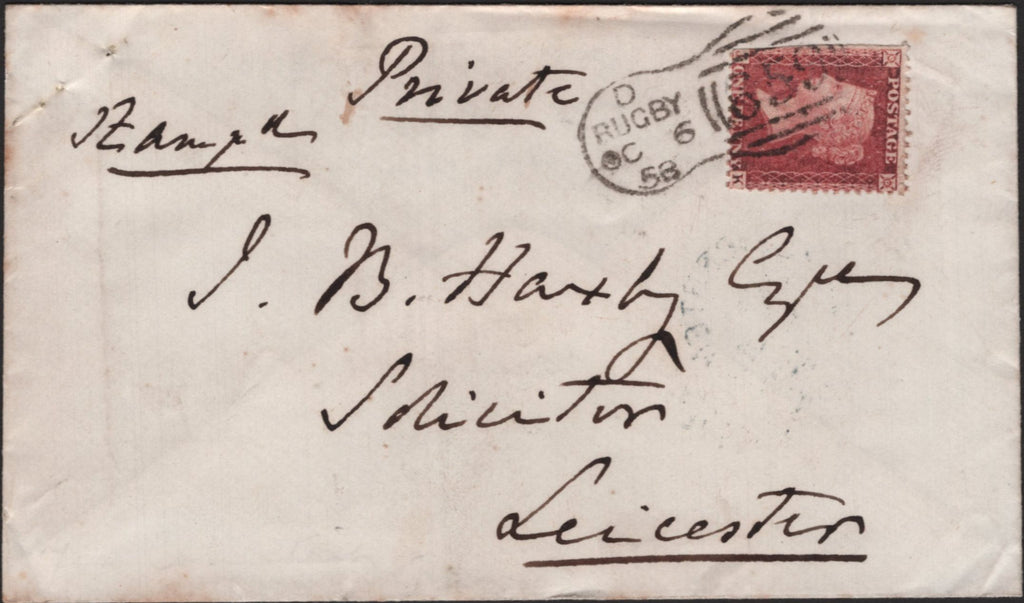 Private
Stamped
D
RUGBY
OC 6
58
POSTAGE
J. B. Haxby Esqre
Solicitor
Leicester